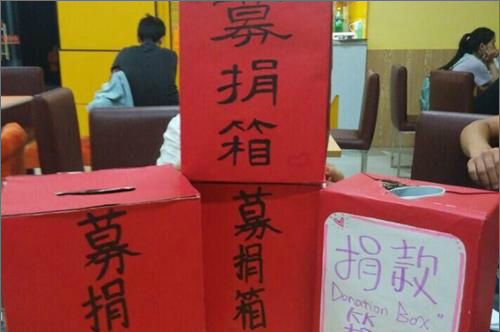 募捐箱
募捐
募捐箱
捐款
Donation Box"